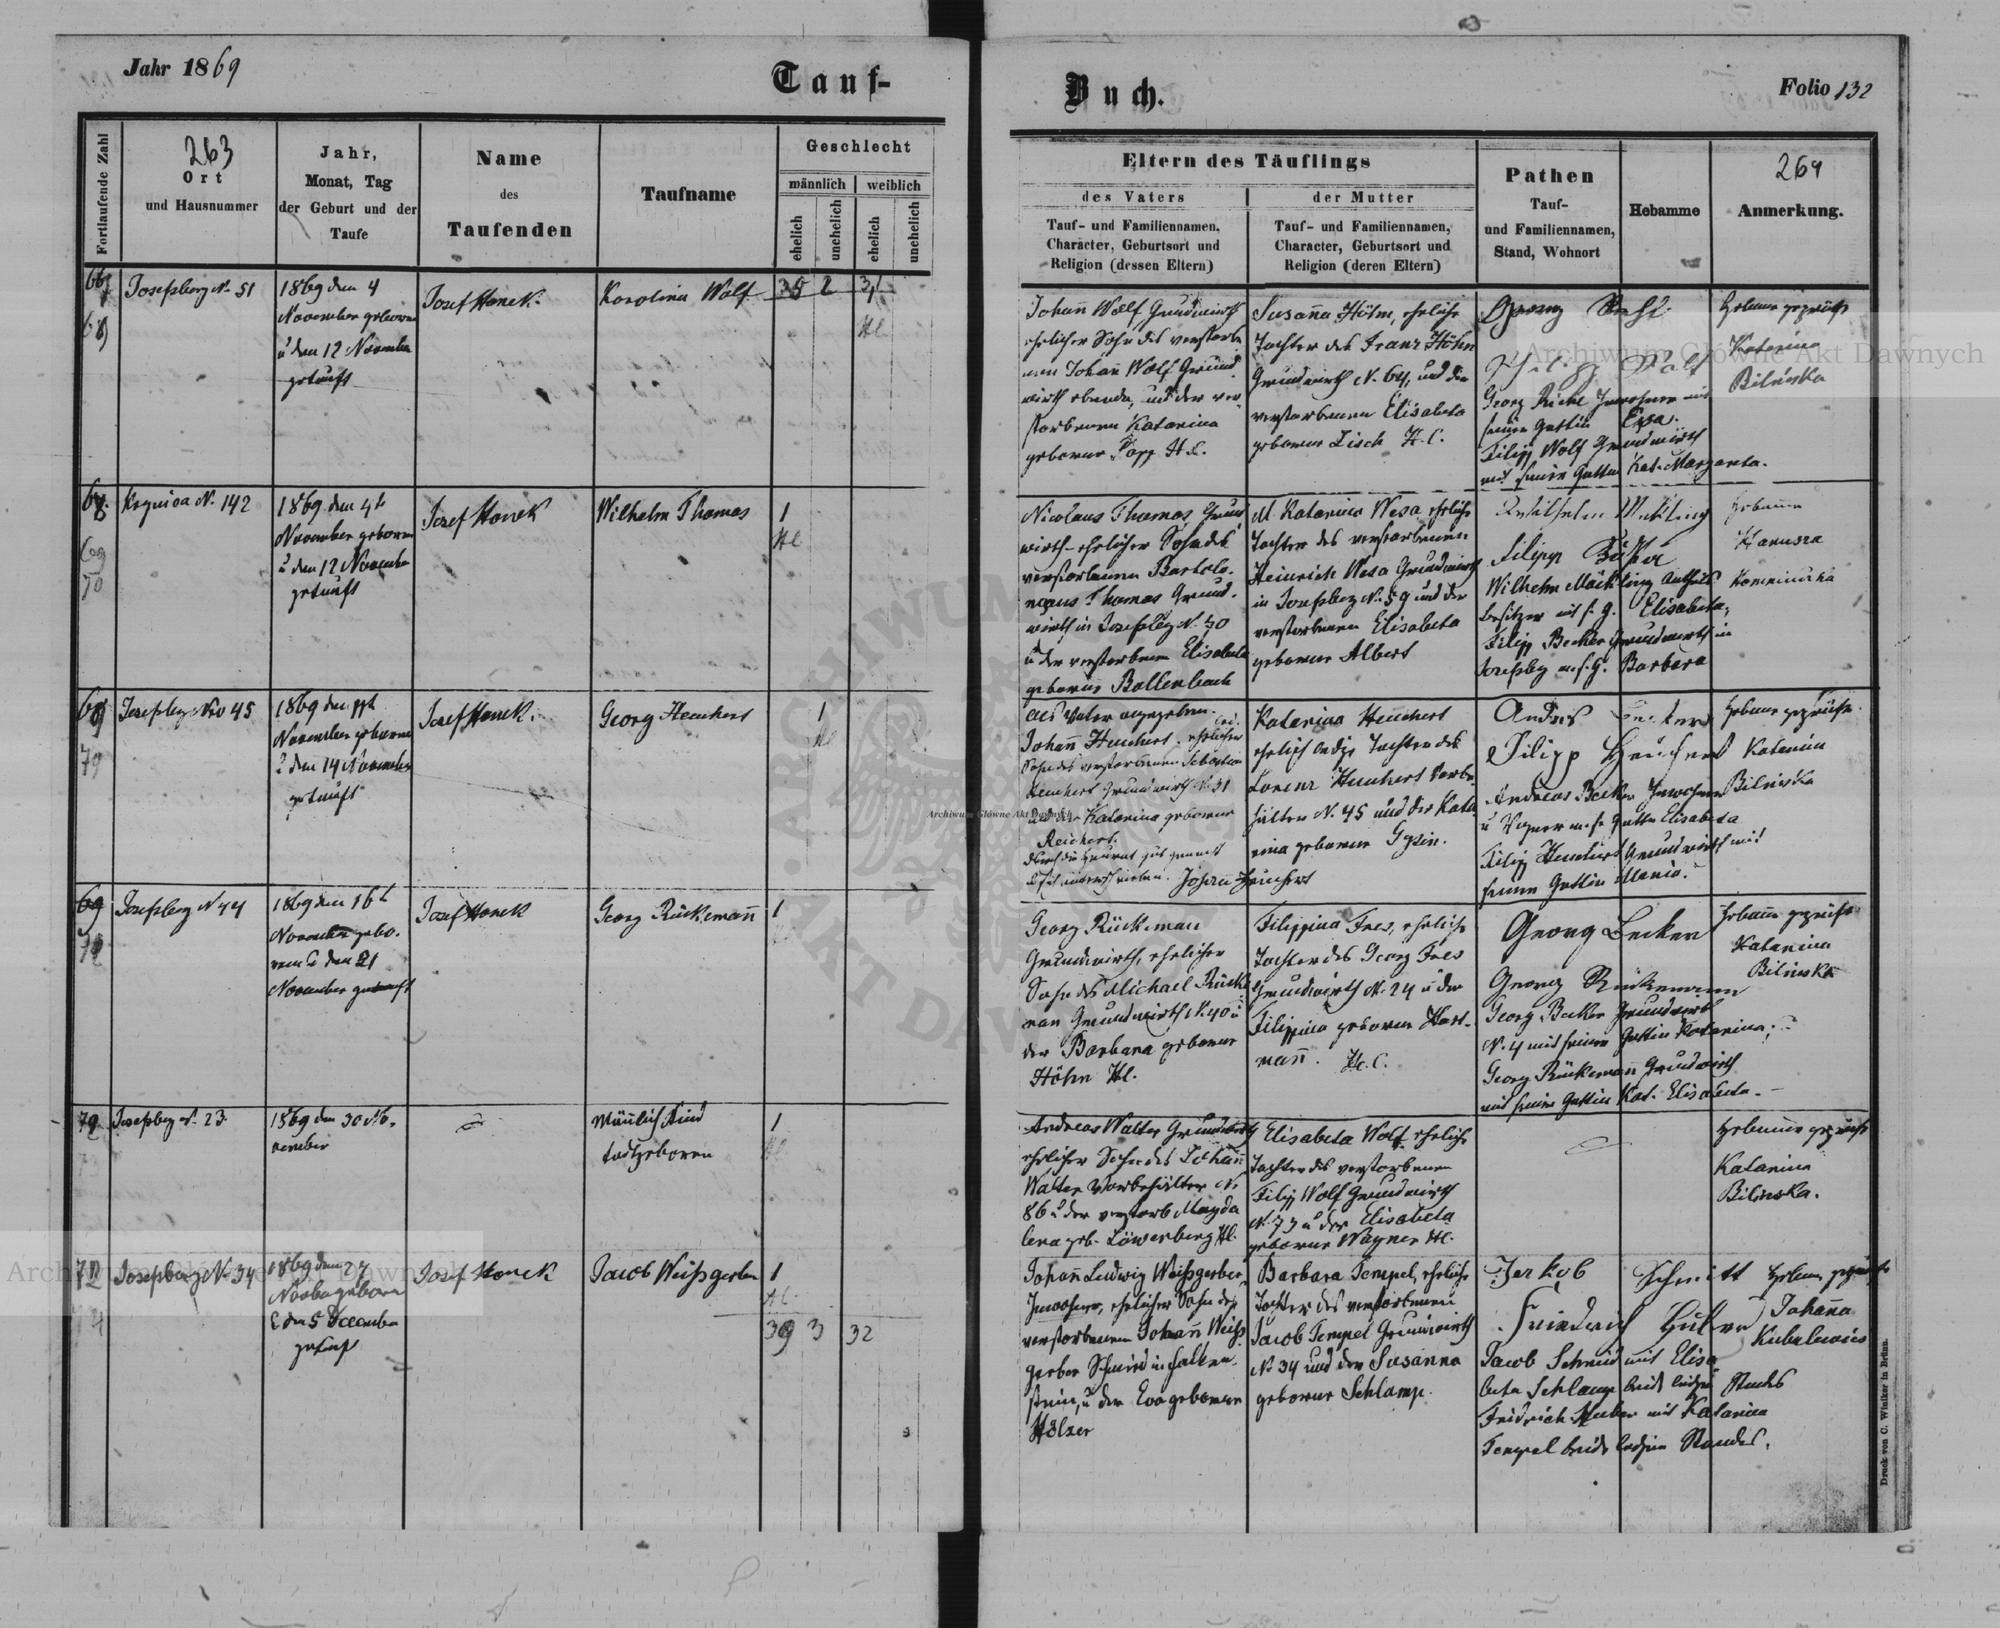 Jahr 1869
Tauf-
Buch.
Folio 132
Fortlaufende Zahl
263
Ort
und Hausnummer
Jahr,
Monat, Tag
der Geburt und der
Taufe
Name
des
Taufenden
Taufname
Geschlecht
männlich
weiblich
ehelich
unehelich
ehelich
unehelich
Eltern des Täuflings
des Vaters
Tauf- und Familiennamen,
Character, Geburtsort und
Religion (dessen Eltern)
der Mutter
Tauf- und Familiennamen,
Character, Geburtsort und
Religion (deren Eltern)
Pathen
Tauf-
und Familiennamen,
Stand, Wohnort
Hebamme
264
Anmerkung.
Josefsberg N. 51
1869 den 4
November geboren
u den 12 November
getauft
Josef Honek
Karolina Wolf
35 2 31
Johann Wolf Grundwirth
ehelicher Sohn des verstorbe
nen Johan Wolf Grund
wirth ebenda, und der ver
storbenen Katarina
geborene Popp H.C.
Susanna Höhn, eheliche
Tochter des Franz Höhn
Grundwirth N. 64, und der
verstorbenen Elisabeta
geborene Zisch H.C.
Georg
Philipp Wolf
Georg
seiner Gattin Eva.
Filipp Wolf Grundwirth
mit seiner Gattin Kat. Margareta.
Hebamme geprüfte
Katarina
Bilinska
N. 142
1869 den 4t
November geboren
u den 12 November
getauft
Josef Honek
Wilhelm Thomas
1
Nicolaus Thomas Grund
wirth ehelicher Sohn des
verstorbenen Bartolo
maus Thomas Grund
wirth in Josefsbg N. 30
u der verstorbenen Elisabeta
geborene Bollenbach
M Katarina Wesa eheliche
Tochter des verstorbenen
Heinrich Wesa Grundwirth
in Josefsberg N. 59 und der
verstorbenen Elisabeta
geborene Albert
Wilhelm
Filipp
Wilhelm Mäckling
besitzer mit s. g. Elisabeta,
Filipp Becker Grundwirth in
Josefsbg m. s. g. Barbara
Hebamme
Hanusza
Josefsberg Nro 45
1869 den
November geboren
u den 14 November
getauft
Josef Honek
Georg Heuchert
1
Als Vater angegeben
Johann Heuchert, ehelicher
Sohn des verstorbenen Sebastian
Heuchert Grundwirth N. 31
und der Katarina geborene
Reichert.
Johann Heuchert
Katarina Heuchert
ehelich ledige Tochter des
Lorenz Heuchert Vorbe
hälter N. 45 und der Kata
rina geborene
Andres Beckers
Filipp Heuchert
Andreas Becker Inwohner
u Wagner m. s. Gattin Elisabeta
Filipp Heuchert Grundwirth mit
seiner Gattin Maria.
Hebamme geprüfte
Katarina
Bilinska
Josefsberg N 44
1869 den 16t
November gebo
ren u den 21
November getauft
Josef Honek
Georg Rückemann
1
Georg Rückeman
Grundwirth, ehelicher
Sohn des Michael Rücke
man Grundwirth N. 40 u
der Barbara geborene
Höhn H.C.
Filippina Fres, eheliche
Tochter des Georg Fres
Grundwirth N. 24 u der
Filippina geborene Hart
mann. H.C.
Georg Becker
Georg Rückemann
Georg Becker Grundwirth
N. 4 mit seiner Gattin Katarina;
Georg Rückemann Grundwirth
mit seiner Gattin Kat. Elisabeta.
Hebamme geprüfte
Katarina
Bilinska
Josefsberg N. 23
1869 den 30 No
vember
Männlich Kind
todtgeboren
1
Andreas Walter Grundwirth
ehelicher Sohn des Johann
Walter Vorbehälter N.
86 u der verstorb Magda
lena geb. Löwenberg H.C.
Elisabeta Wolf eheliche
Tochter des verstorbenen
Filipp Wolf Grundwirth
N. 73 u der Elisabeta
geborene Wagner H.C.
Hebamme geprüfte
Katarina
Bilinska.
Josefsberg N. 34
1869 den 27
Novber geboren
u den 5 December
getauft
Josef Honek
Jacob Weißgerber
1
39 3 32
Johann Ludwig Weißgerber
Inwohner, ehelicher Sohn des
verstorbenen Johann Weiß
gerber Schmied in Falken
stein, u der Eva geborene
Hölzer
Barbara Tempel, eheliche
Tochter des verstorbenen
Jacob Tempel Grundwirth
N. 34 und der Susanna
geborene Schlamp.
Jakob Schmitt
Friedrich Huber
Jacob Schmid mit Elisa
beta Schlamp beide ledigen Standes
Fridrich Huber mit Katarina
Tempel beide ledigen Standes.
Hebamme geprüfte
Johanna
Archiwum Główne Akt Dawnych
Archiwum Główne Akt Dawnych
Archiwum Główne Akt Dawnych
Druck von C. Winiker in Brünn.